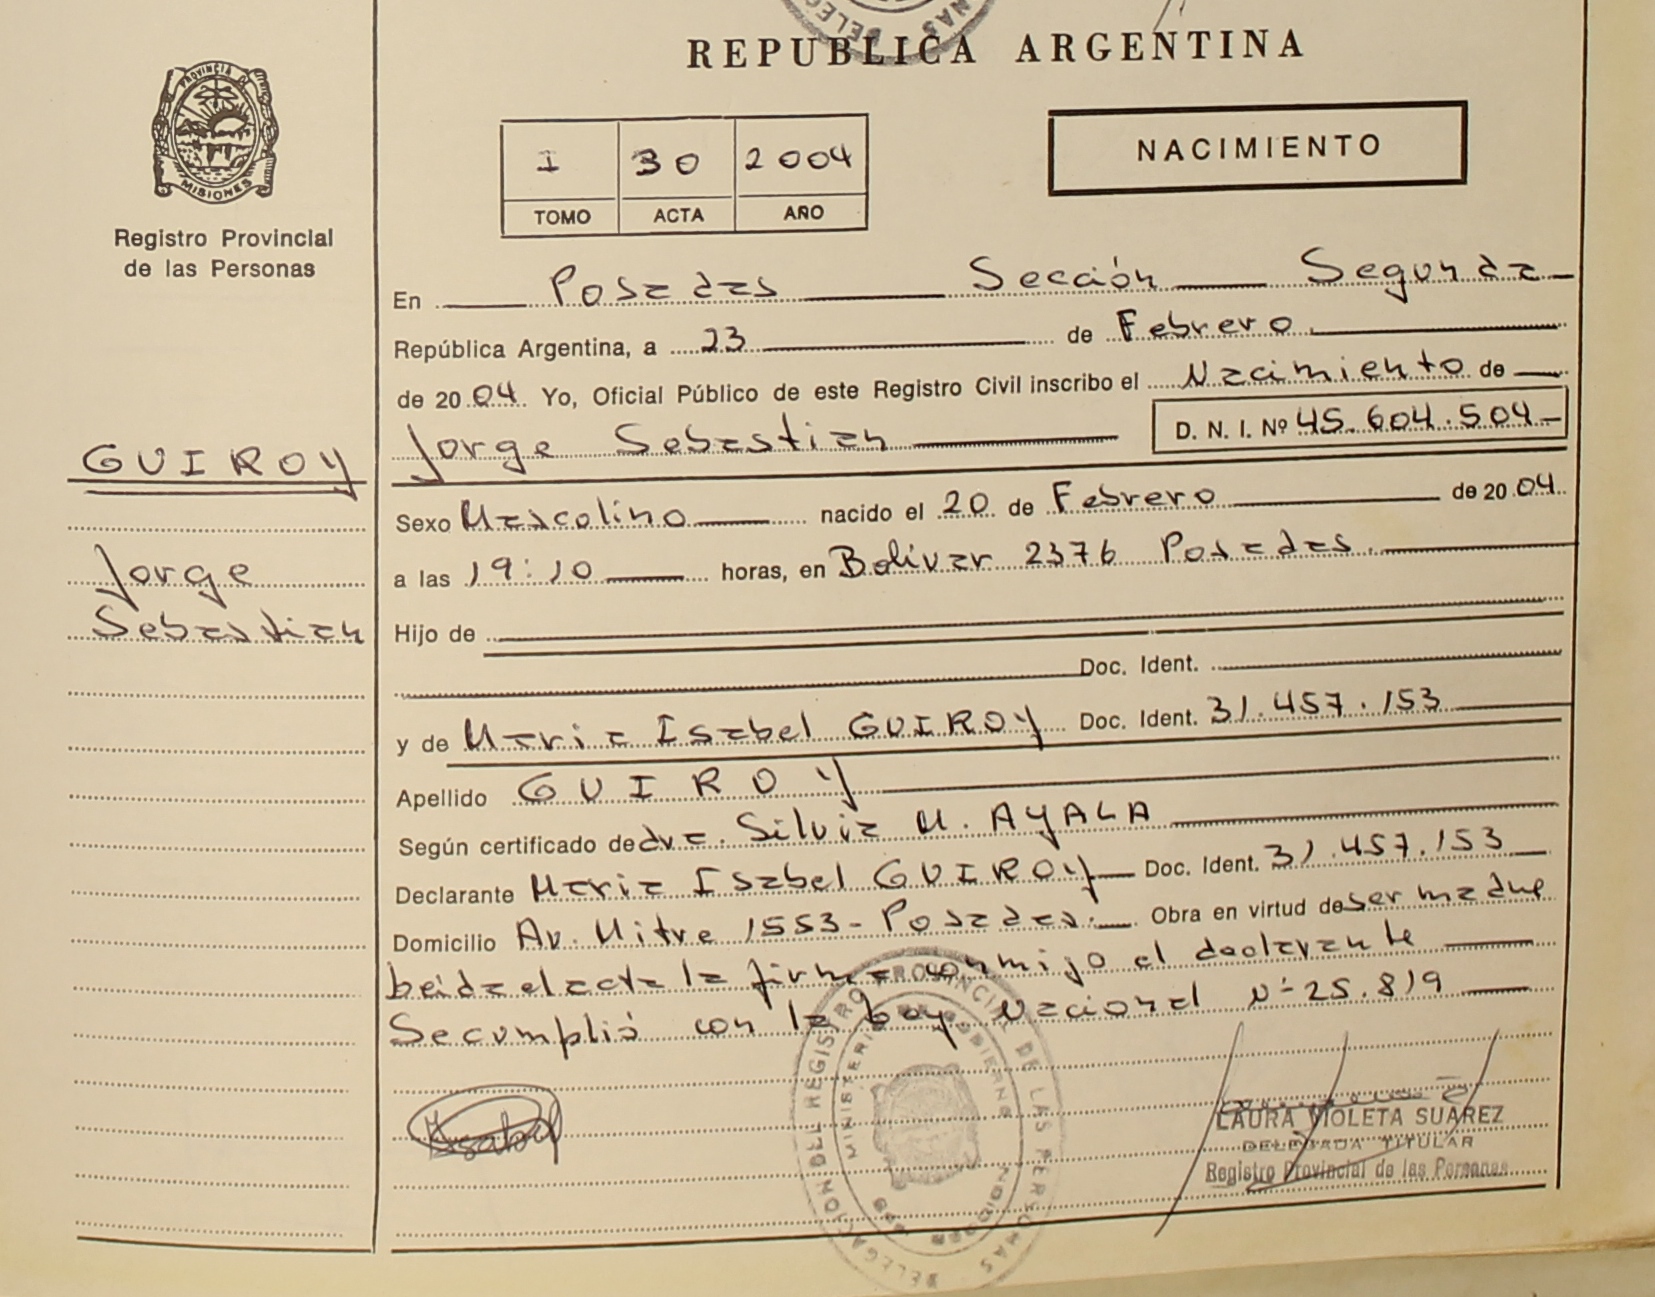 REPUBLICA ARGENTINA
PROVINCIA D
MISIONES
Registro Provincial
de las Personas
I 30 2004
TOMO ACTA AÑO
NACIMIENTO
En Posadas Sección Segunda
República Argentina, a 23 de Febrero
de 2004 Yo, Oficial Público de este Registro Civil inscribo el Nacimiento de
Jorge Sebastian D. N. I. Nº 45.604.504
GUIROY
Jorge
Sebastian
Sexo Masculino nacido el 20 de Febrero de 2004
a las 19:10 horas, en Bolivar 2376 Posadas.
Hijo de
Doc. Ident.
y de Maria Isabel GUIROY Doc. Ident. 31.457.153
Apellido GUIROY
Según certificado de dra. Silvia M. AYALA
Declarante Maria Isabel GUIROY Doc. Ident. 31.457.153
Domicilio Av. Mitre 1553- Posadas. Obra en virtud de ser madre
Leida el acta la firma conmigo el declarante
Se cumplió con la Ley Nacional Nº 25.819
Isabel
DELEGACION DEL REGISTRO PROVINCIAL DE LAS PERSONAS
LAURA VIOLETA SUAREZ
DELEGADA TITULAR
Registro Provincial de las Personas